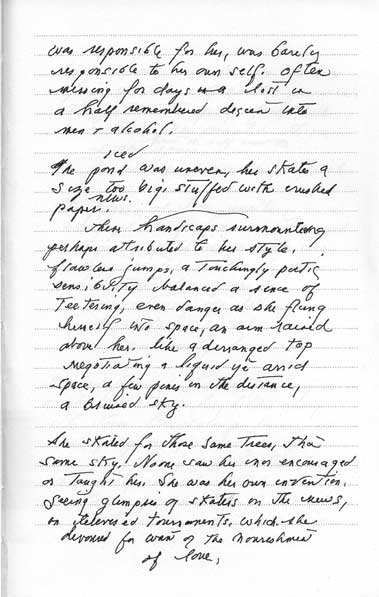 was responsible for her, was barely
responsible to her own self. often
missing for days in a lost in
a half remembered descent into
men + alcohol.
iced
The pond was uneven, her skates a
size too big. stuffed with crushed
news.
paper.
These handicaps surmounting
perhaps attributed to her style.
flawless jumps, a touchingly poetic
sensibility balanced a sence of
teetering, even danger as she flung
herself into space, an arm raised
above her. like a deranged top
negotiating a liquid yet arrid
space, a few pines in the distance,
a bruised sky.
She skated for those same trees, that
same sky. No one saw her nor encouraged
or taught her. She was her own invention.
Seeing glimpses of skaters on the news,
on televised tournaments. which she
devoured for want of the nourishment
of love,